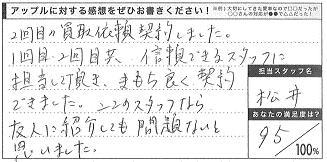 アップルに対する感想をぜひお書きください!
※例)大切にしてきた愛車なので□□だったが
○○さんの対応が●●で△△だった!
2回目の買取依頼契約しました。
1回目・2回目共、信頼できるスタッフに
担当して頂き、きもち良く契約
できました。このスタッフなら
友人に紹介しても問題ないと
思いました。
担当スタッフ名
松井
あなたの満足度は?
95/100%